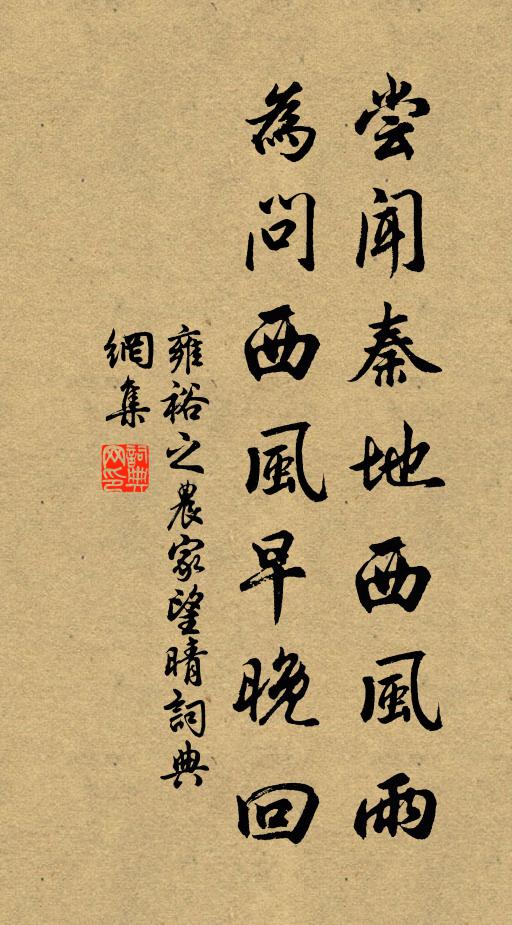 尝闻秦地西風雨
為問西風早晚回
雍裕之農家望晴詞典
網集
詞典
网印